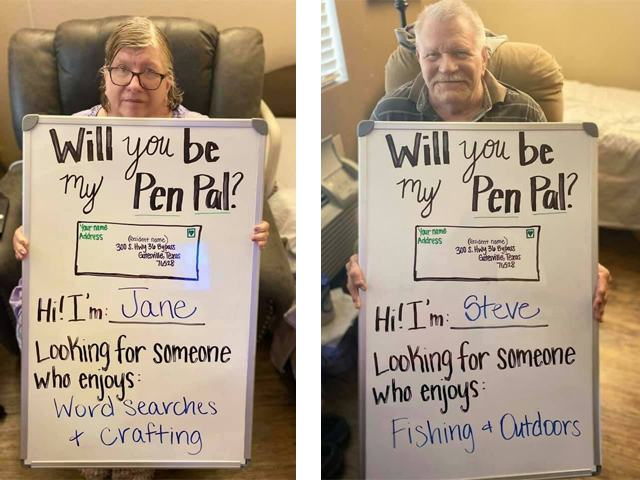 Will you be
my Pen Pal?
Your name
Address
(Resident name)
300 S. Hwy 36 Bypass
Gatesville, Texas
76528
Hi! I'm: Jane
Looking for someone
who enjoys:
Word Searches
+ Crafting
Will you be
my Pen Pal?
Your name
Address
(Resident name)
300 S. Hwy 36 Bypass
Gatesville, Texas
76528
Hi! I'm: Steve
Looking for someone
who enjoys:
Fishing + Outdoors